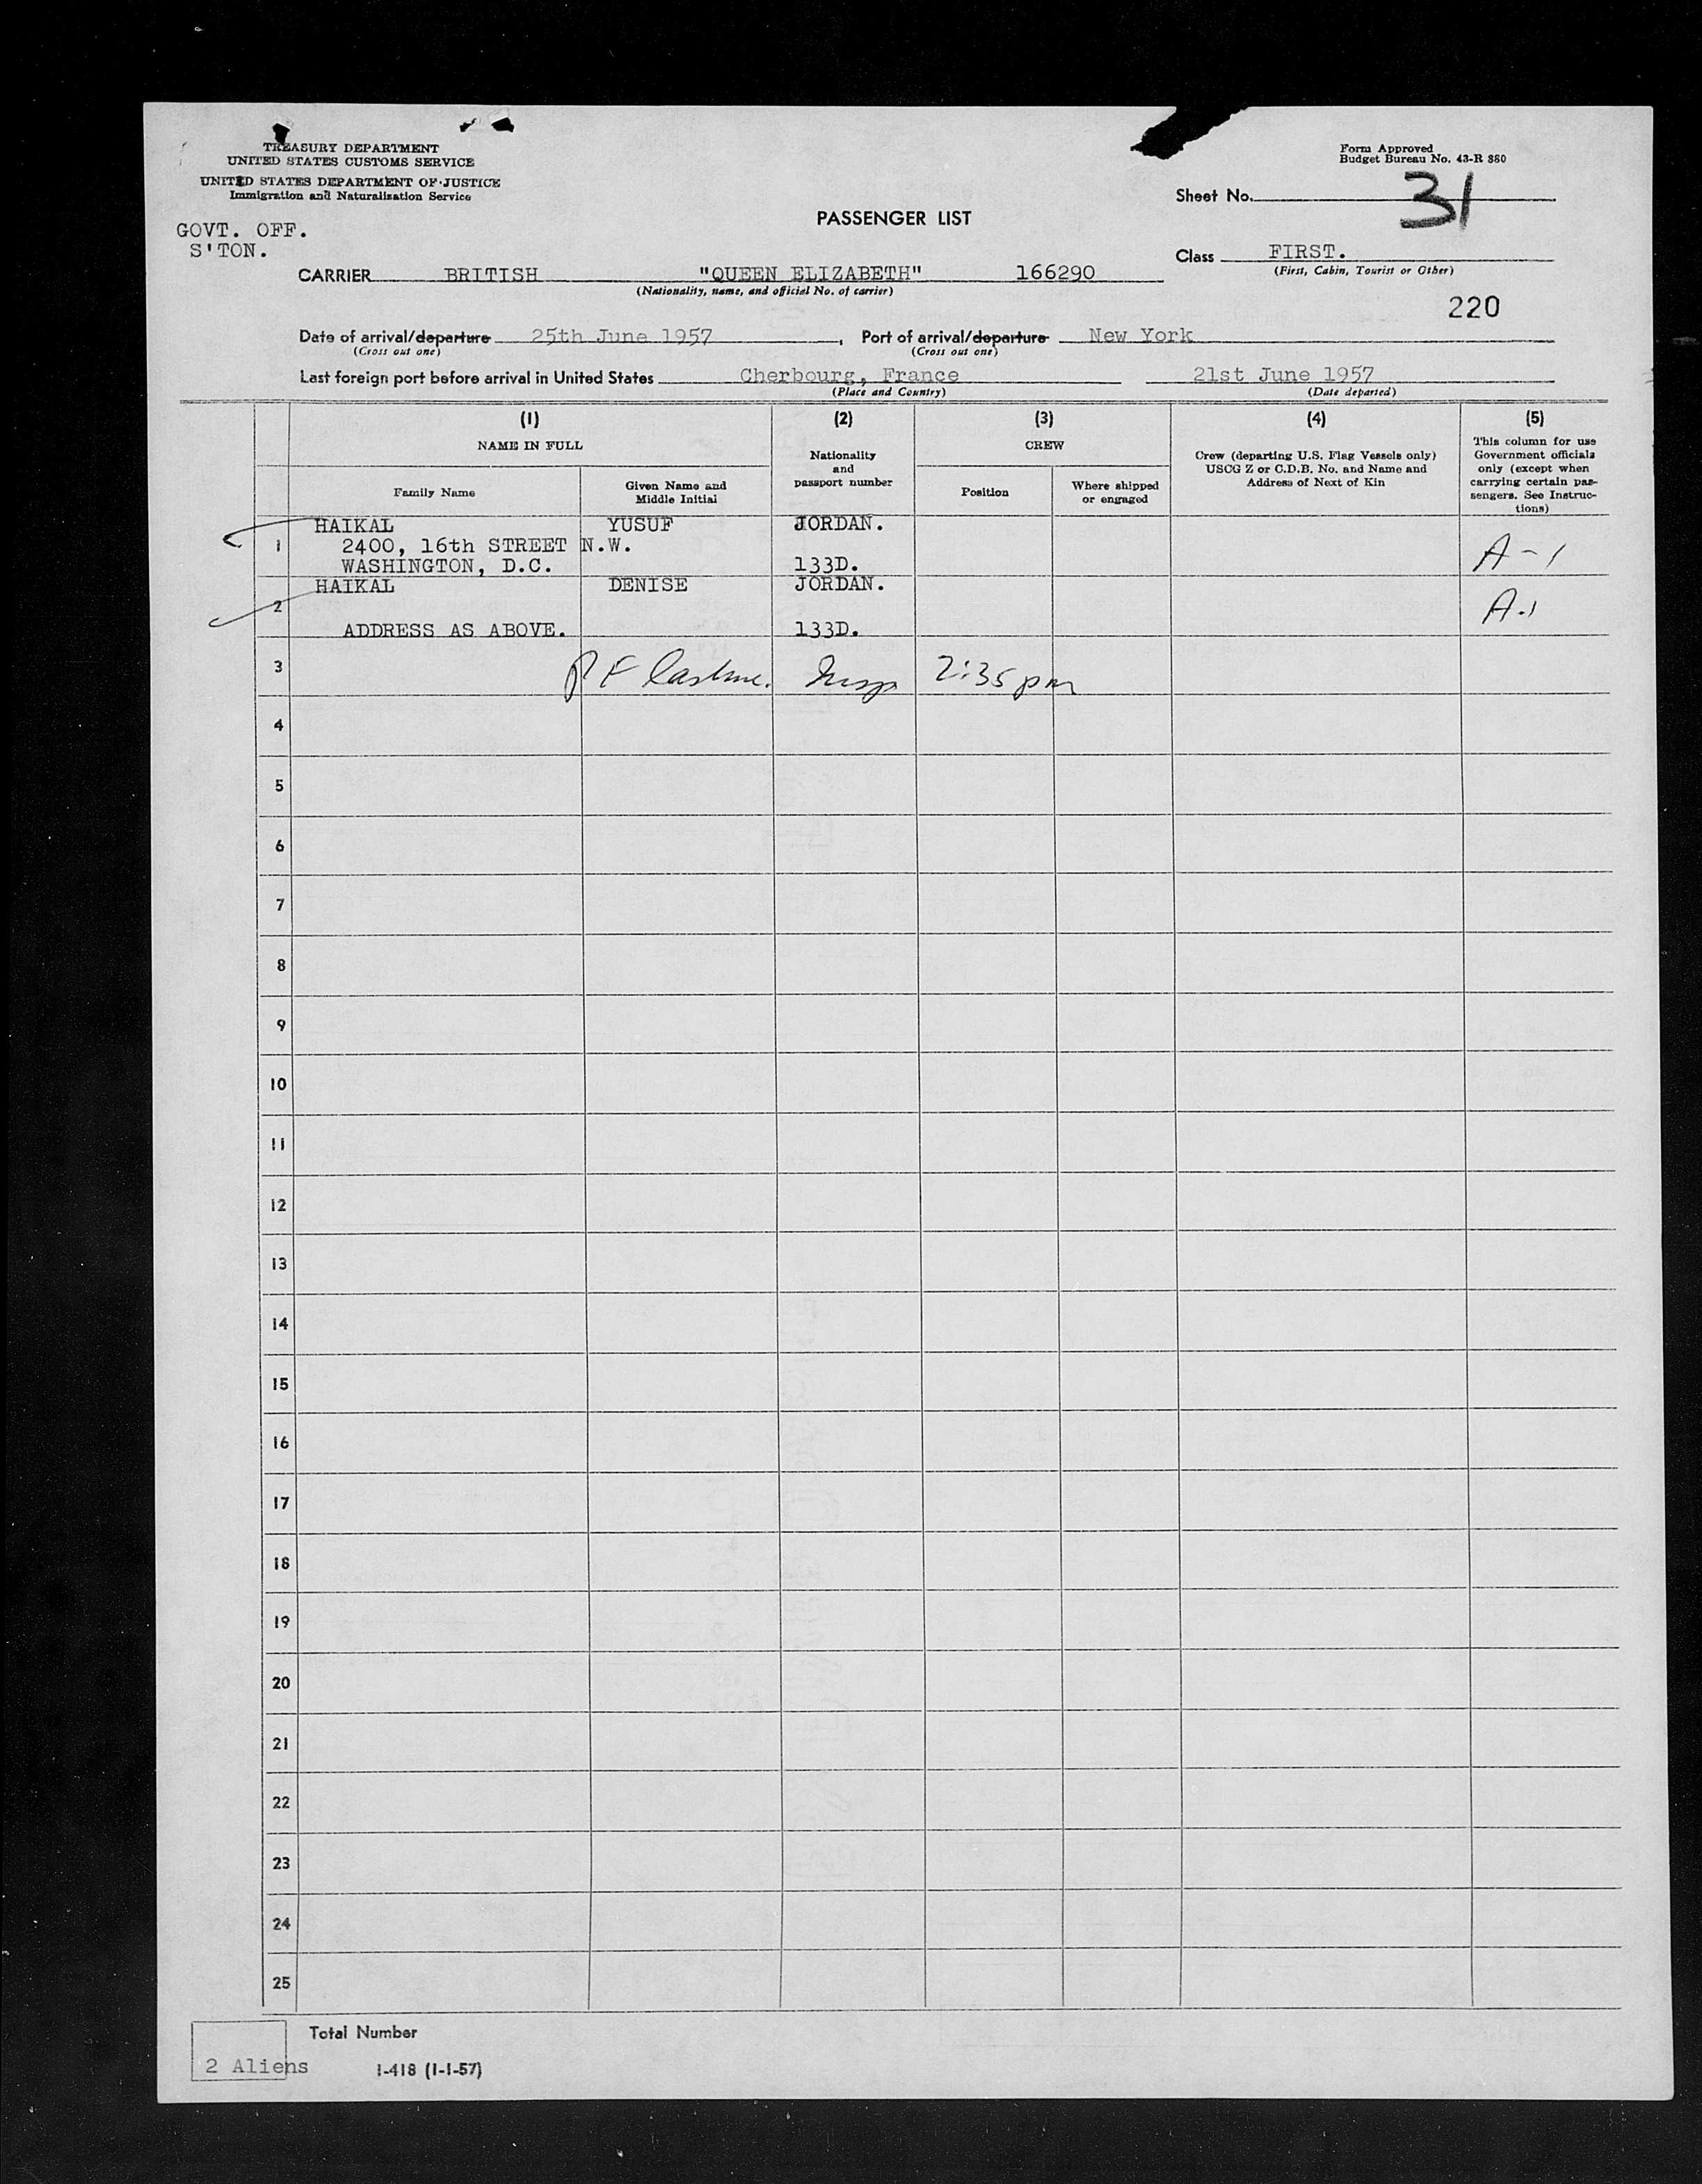 TREASURY DEPARTMENT
UNITED STATES CUSTOMS SERVICE
UNITED STATES DEPARTMENT OF JUSTICE
Immigration and Naturalization Service
Form Approved
Budget Bureau No. 43-R 880
Sheet No. 31
GOVT. OFF.
S'TON.
PASSENGER LIST
Class FIRST.
(First, Cabin, Tourist or Other)
CARRIER BRITISH "QUEEN ELIZABETH" 166290
(Nationality, name, and official No. of carrier)
220
Date of arrival/departure 25th June 1957, Port of arrival/departure New York
(Cross out one) (Cross out one)
Last foreign port before arrival in United States Cherbourg, France 21st June 1957
(Place and Country) (Date departed)
(1) (2) (3) (4) (5)
NAME IN FULL
Family Name
Given Name and
Middle Initial
Nationality
and
passport number
CREW
Position
Where shipped
or engaged
Crew (departing U.S. Flag Vessels only)
USCG Z or C.D.B. No. and Name and
Address of Next of Kin
This column for use
Government officials
only (except when
carrying certain pas-
sengers. See Instruc-
tions)
HAIKAL YUSUF JORDAN.
1 2400, 16th STREET N.W. A-1
WASHINGTON, D.C. 133D.
HAIKAL DENISE JORDAN.
2 A-1
ADDRESS AS ABOVE. 133D.
3 2:35 pm
4
5
6
7
8
9
10
11
12
13
14
15
16
17
18
19
20
21
22
23
24
25
Total Number
2 Aliens
I-418 (1-1-57)